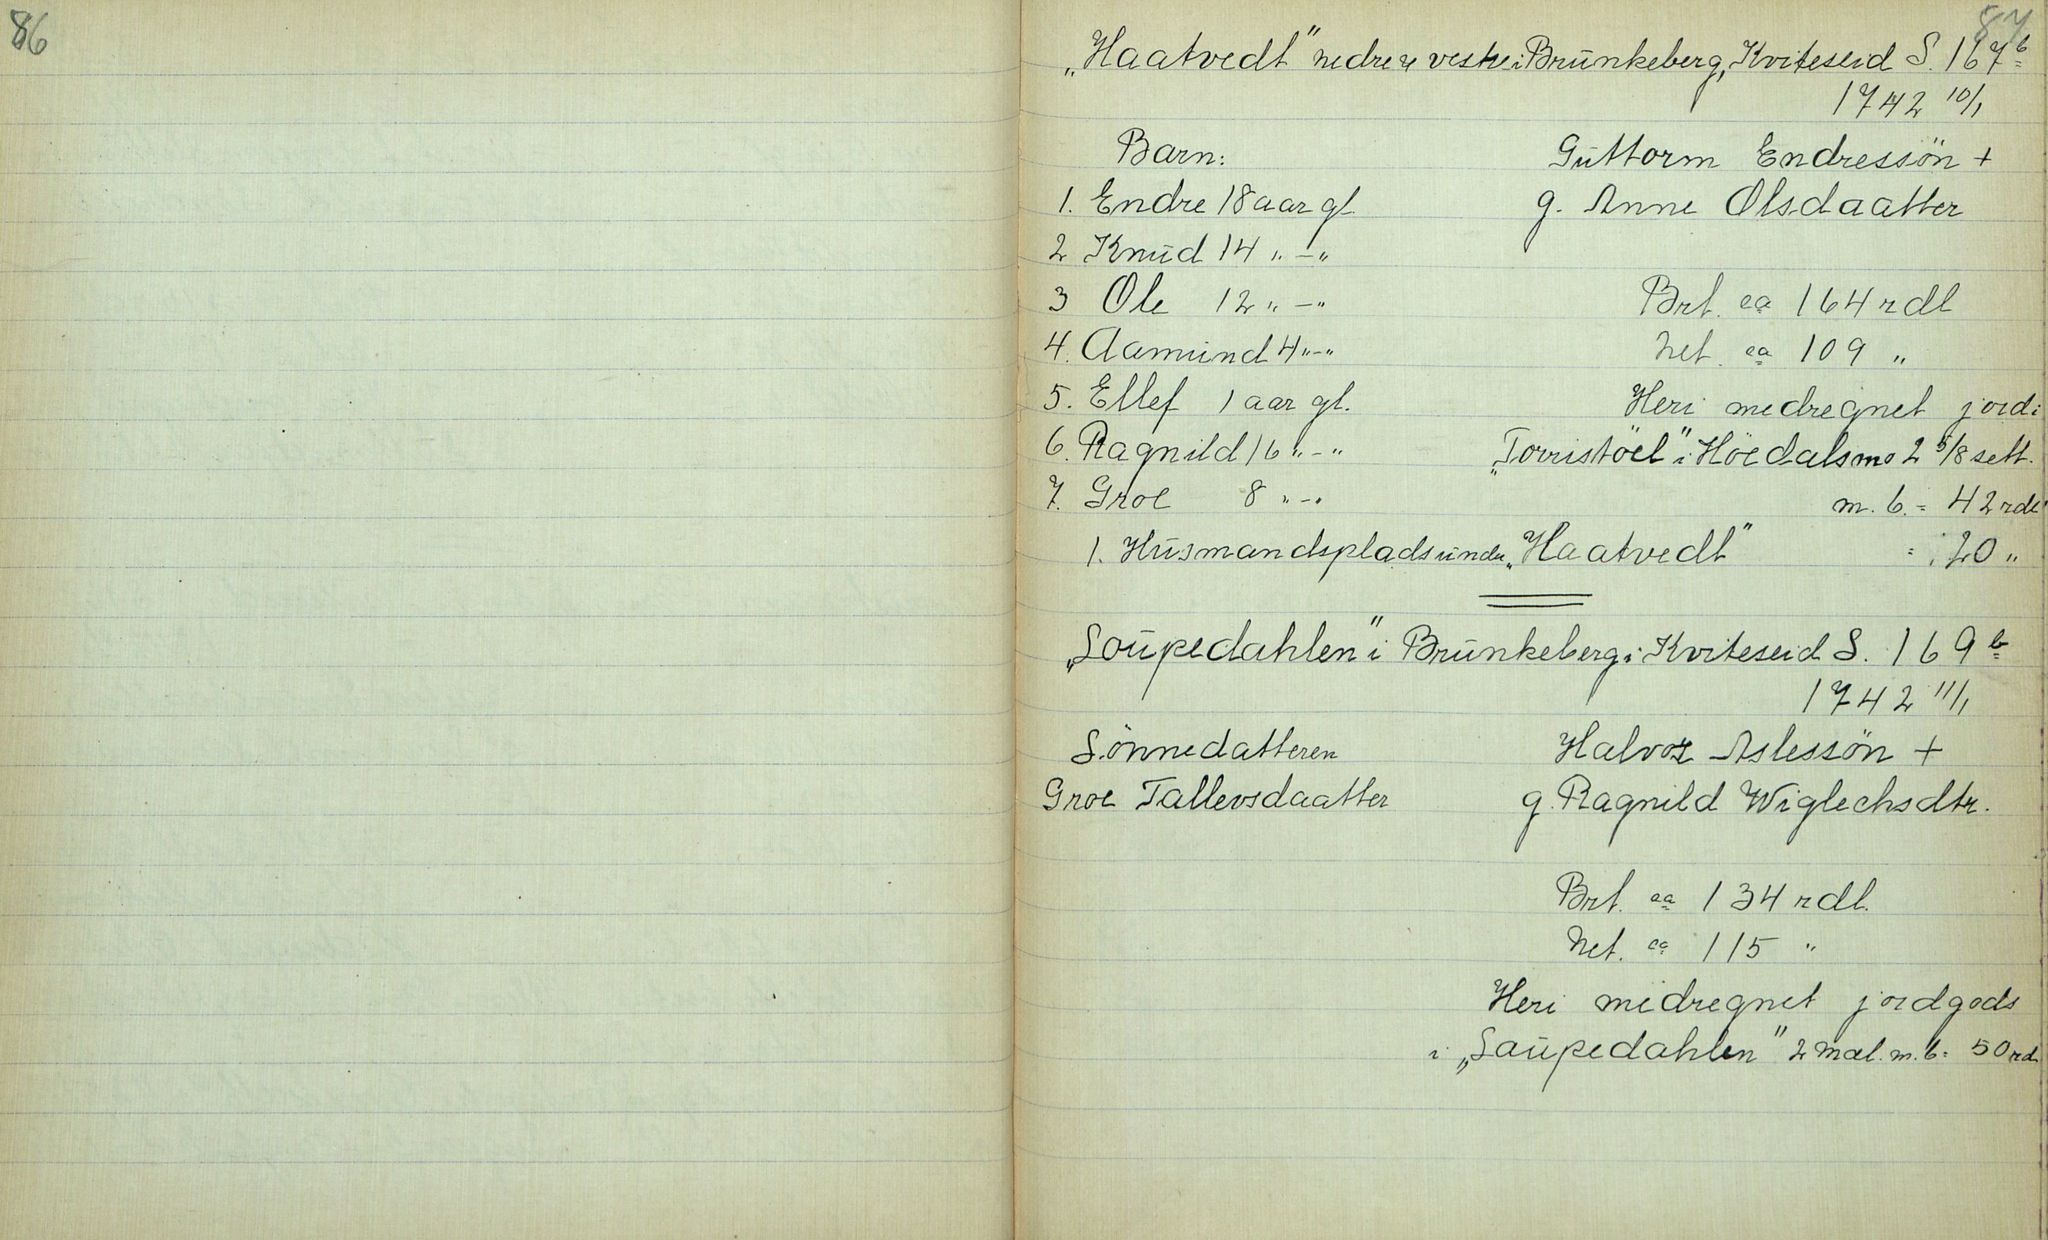 86
87
„Haatvedt" nedre & vestre i Brünkeberg, Kviteseid S. 167 b
1742 10/1
Barn: Güttorm Endressön +
1. Endre 18 aar gl. g. Anne Olsdaatter
2 Knüd 14 „ – „
3 Ole 12 „ – „ Brt. ca 164 rdl
4. Aamünd 4 „ – „ Net. ca 109 „
5. Ellef 1 aar gl. Heri medregnet jord i
6. Ragnild 16 „ – „ „Torristöel" i Höedalsmo 2 5/8 sett.
7. Groe 8 „ – „ m. b. = 42 rdl
1. Hüsmandsplads ünder „Haatvedt" = 20 „
„Loüpedahlen" i Brünkeberg i Kviteseid S. 169 b
1742 11/1
Sönnedatteren Halvor Aslessön +
Groe Tallevsdaatter g. Ragnild Wiglechsdtr.
Brt. ca 134 rdl.
Net. ca 115 „
Heri medregnet jordgods
i „Laüpedahlen" 2 mæl. m. b = 50 rd